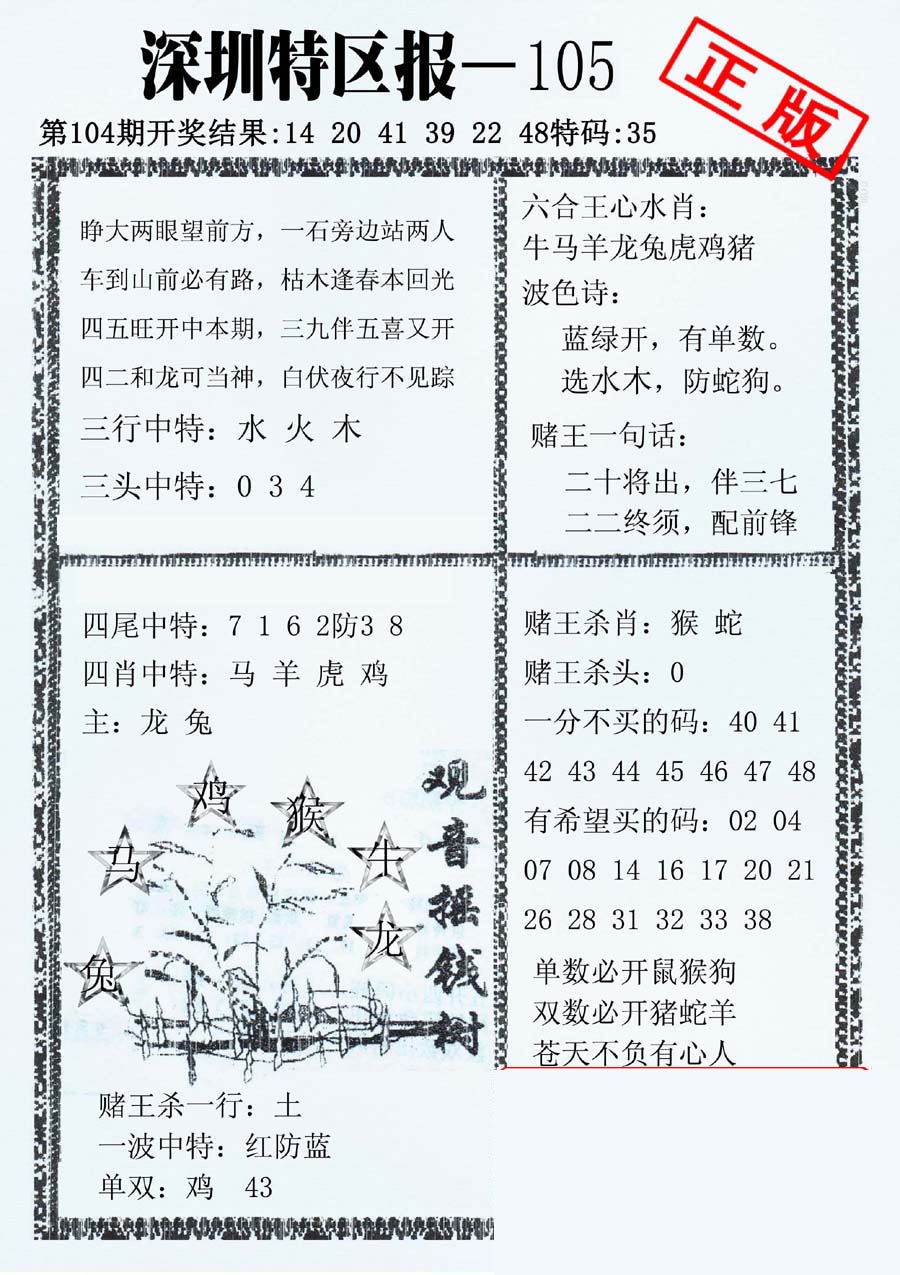 深圳特区报—105
正版
第104期开奖结果:14 20 41 39 22 48特码:35
睁大两眼望前方，一石旁边站两人
车到山前必有路，枯木逢春本回光
四五旺开中本期，三九伴五喜又开
四二和龙可当神，白伏夜行不见踪
三行中特：水 火 木
三头中特：0 3 4
六合王心水肖：
牛马羊龙兔虎鸡猪
波色诗：
蓝绿开，有单数。
选水木，防蛇狗。
赌王一句话：
二十将出，伴三七
二二终须，配前锋
四尾中特：7 1 6 2防3 8
四肖中特：马 羊 虎 鸡
主：龙 兔
鸡
猴
马
牛
龙
兔
观音摇钱树
赌王杀一行：土
一波中特：红防蓝
单双：鸡 43
赌王杀肖：猴 蛇
赌王杀头：0
一分不买的码：40 41
42 43 44 45 46 47 48
有希望买的码：02 04
07 08 14 16 17 20 21
26 28 31 32 33 38
单数必开鼠猴狗
双数必开猪蛇羊
苍天不负有心人